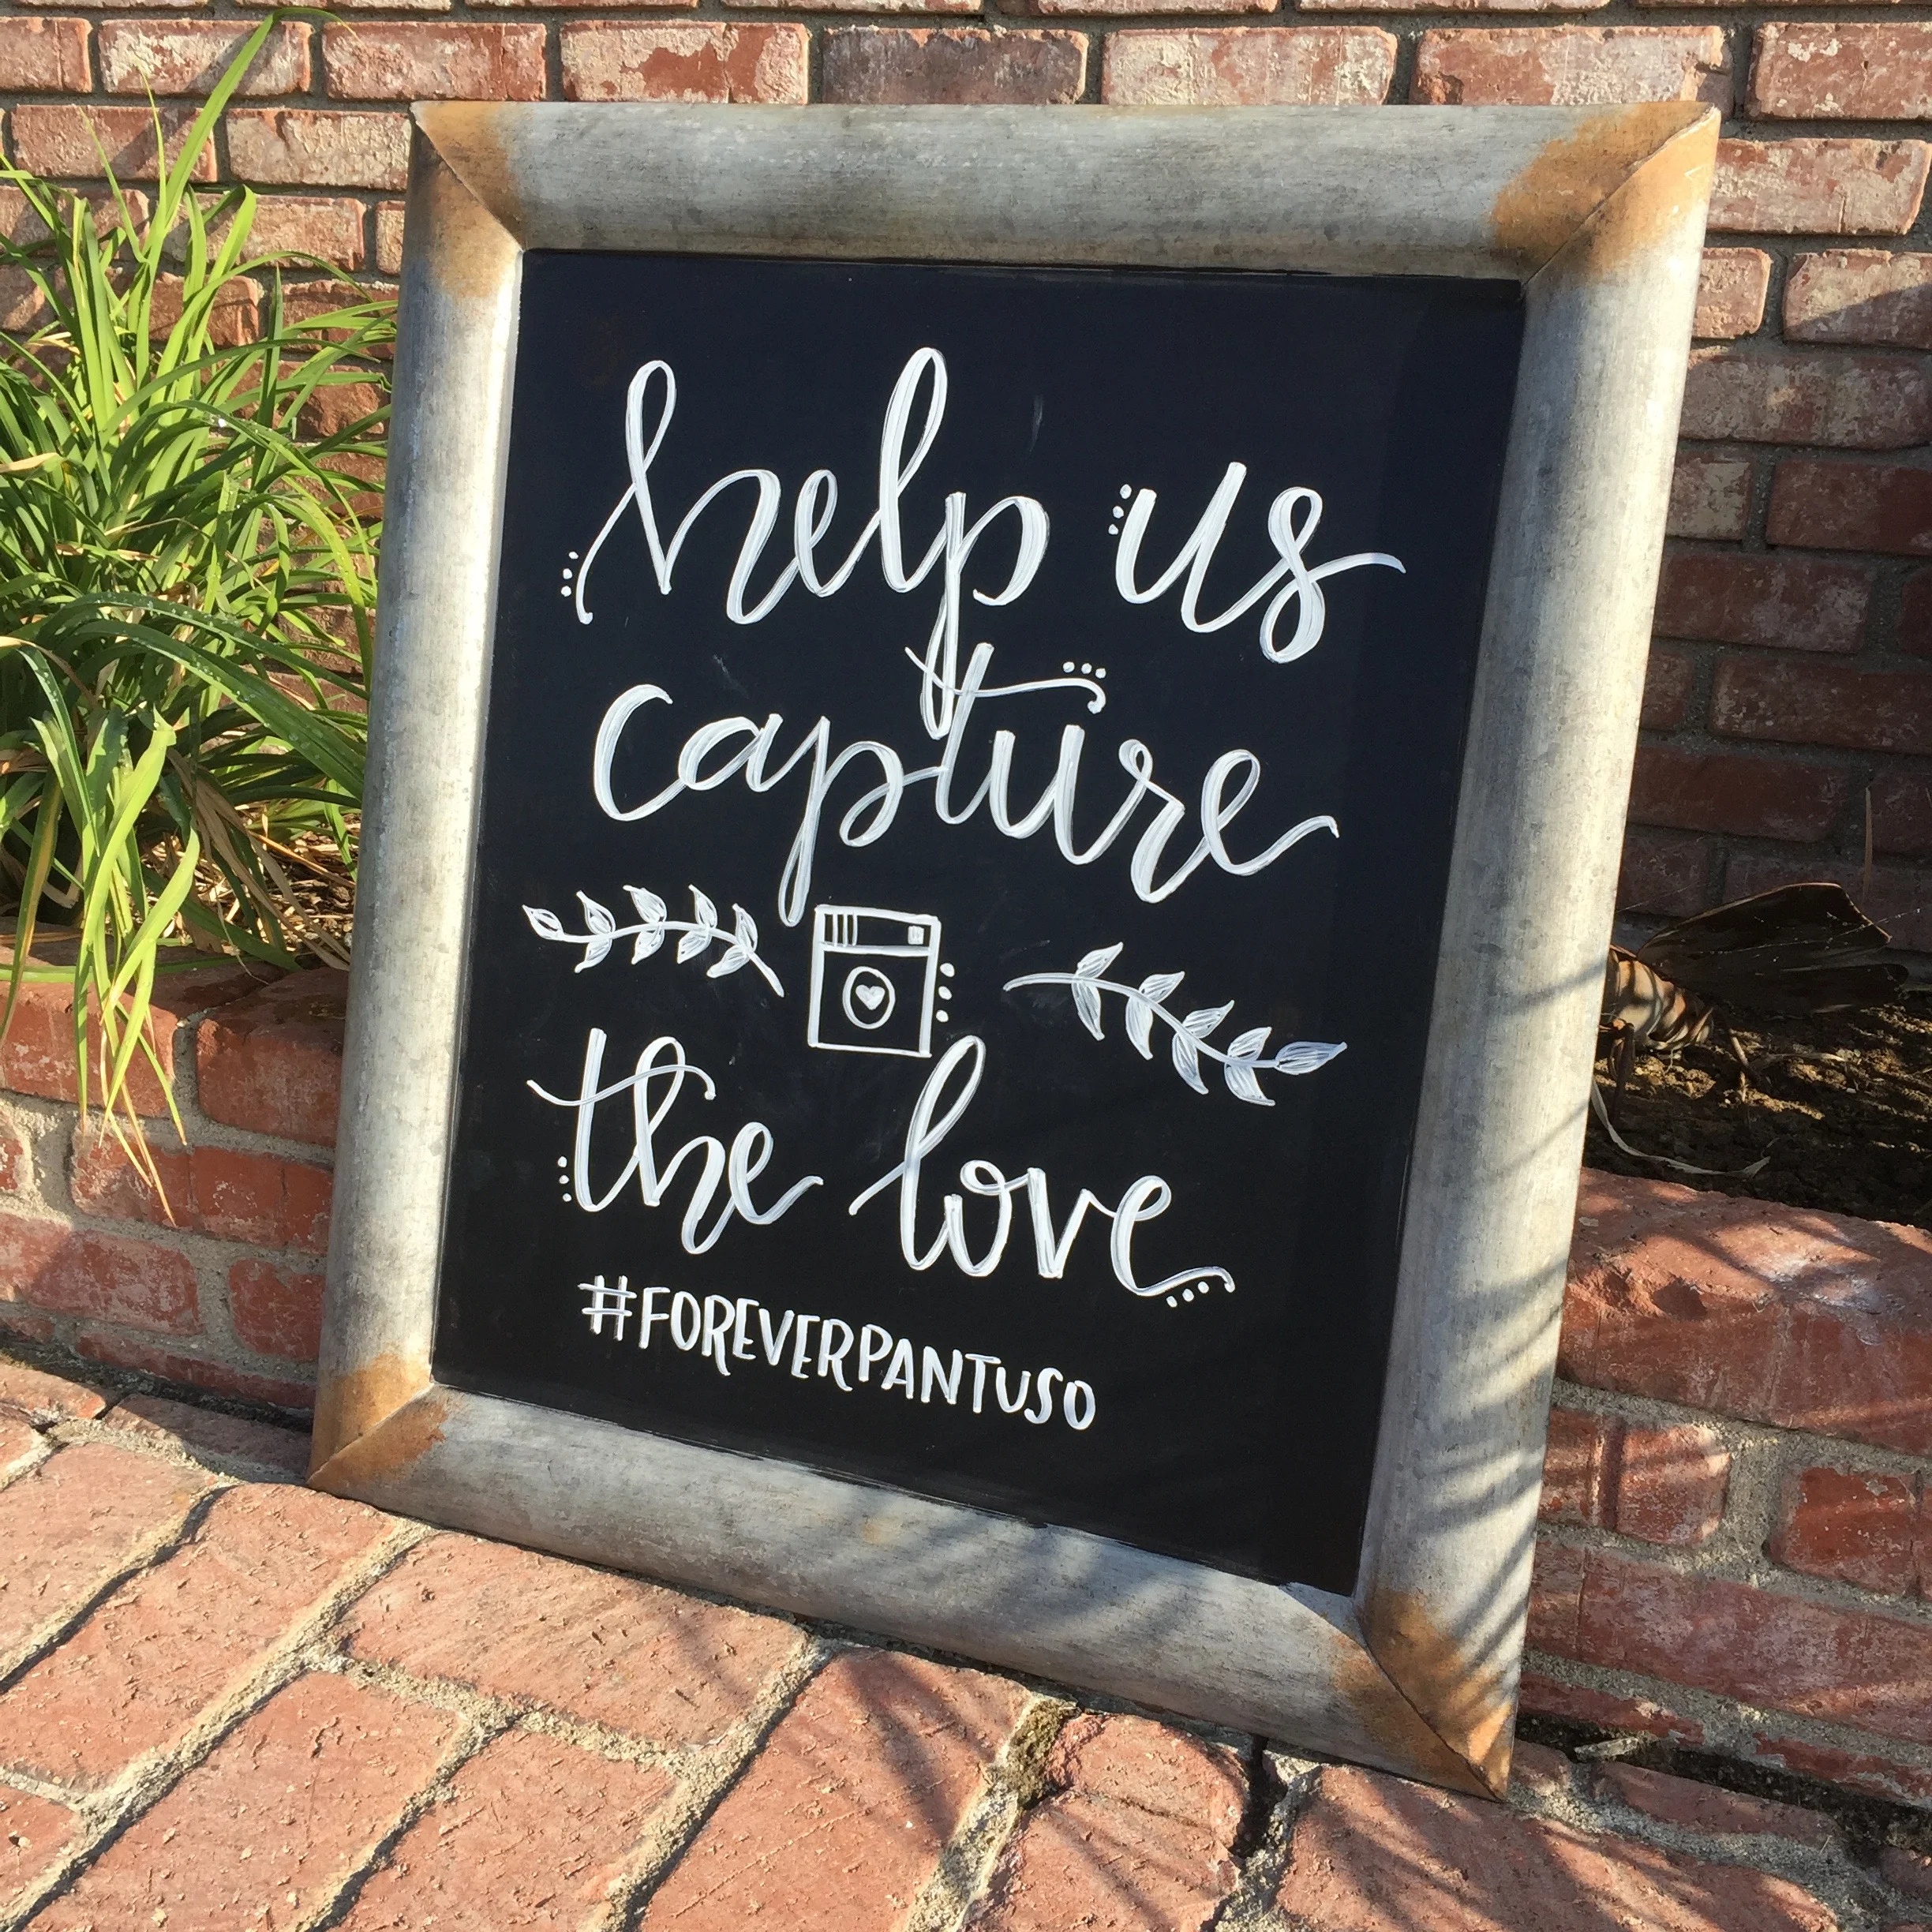 help us
capture
the love
#FOREVERPANTUSO